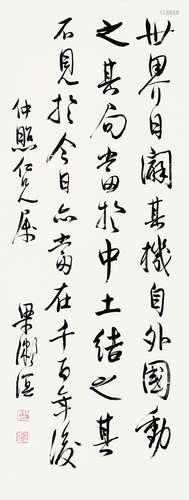 世界日辟其機自外國動
之其局當於中土結之其
不見於今日亦當在千百年後
仲照仁兄属
梁漱溟